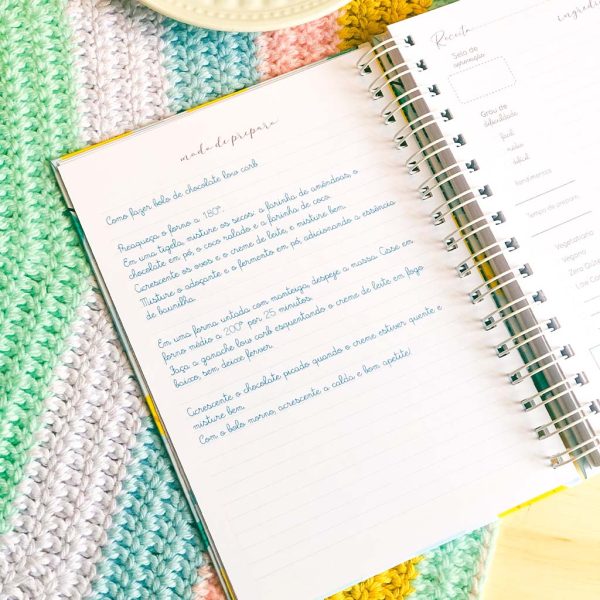 modo de preparo
Como fazer bolo de chocolate low carb
Preaqueça o forno a 180º
Em uma tigela, misture os secos: a farinha de amêndoas, o
chocolate em pó, o coco ralado e a farinha de coco.
Acrescente os ovos e o creme de leite, e misture bem.
Misture o adoçante e o fermento em pó, adicionando a essência
de baunilha.
Em uma forma untada com manteiga, despeje a massa. Asse em
forno médio a 200º por 25 minutos.
Faça a ganache low carb esquentando o creme de leite em fogo
baixo, sem deixar ferver.
Acrescente o chocolate picado quando o creme estiver quente e
misture bem.
Com o bolo morno, acrescente a calda e bom apetite!
Receita
Selo de
aprovação
Grau de
dificuldade
fácil
médio
difícil
Rendimento
Tempo de preparo
Vegetariana
Vegana
Low